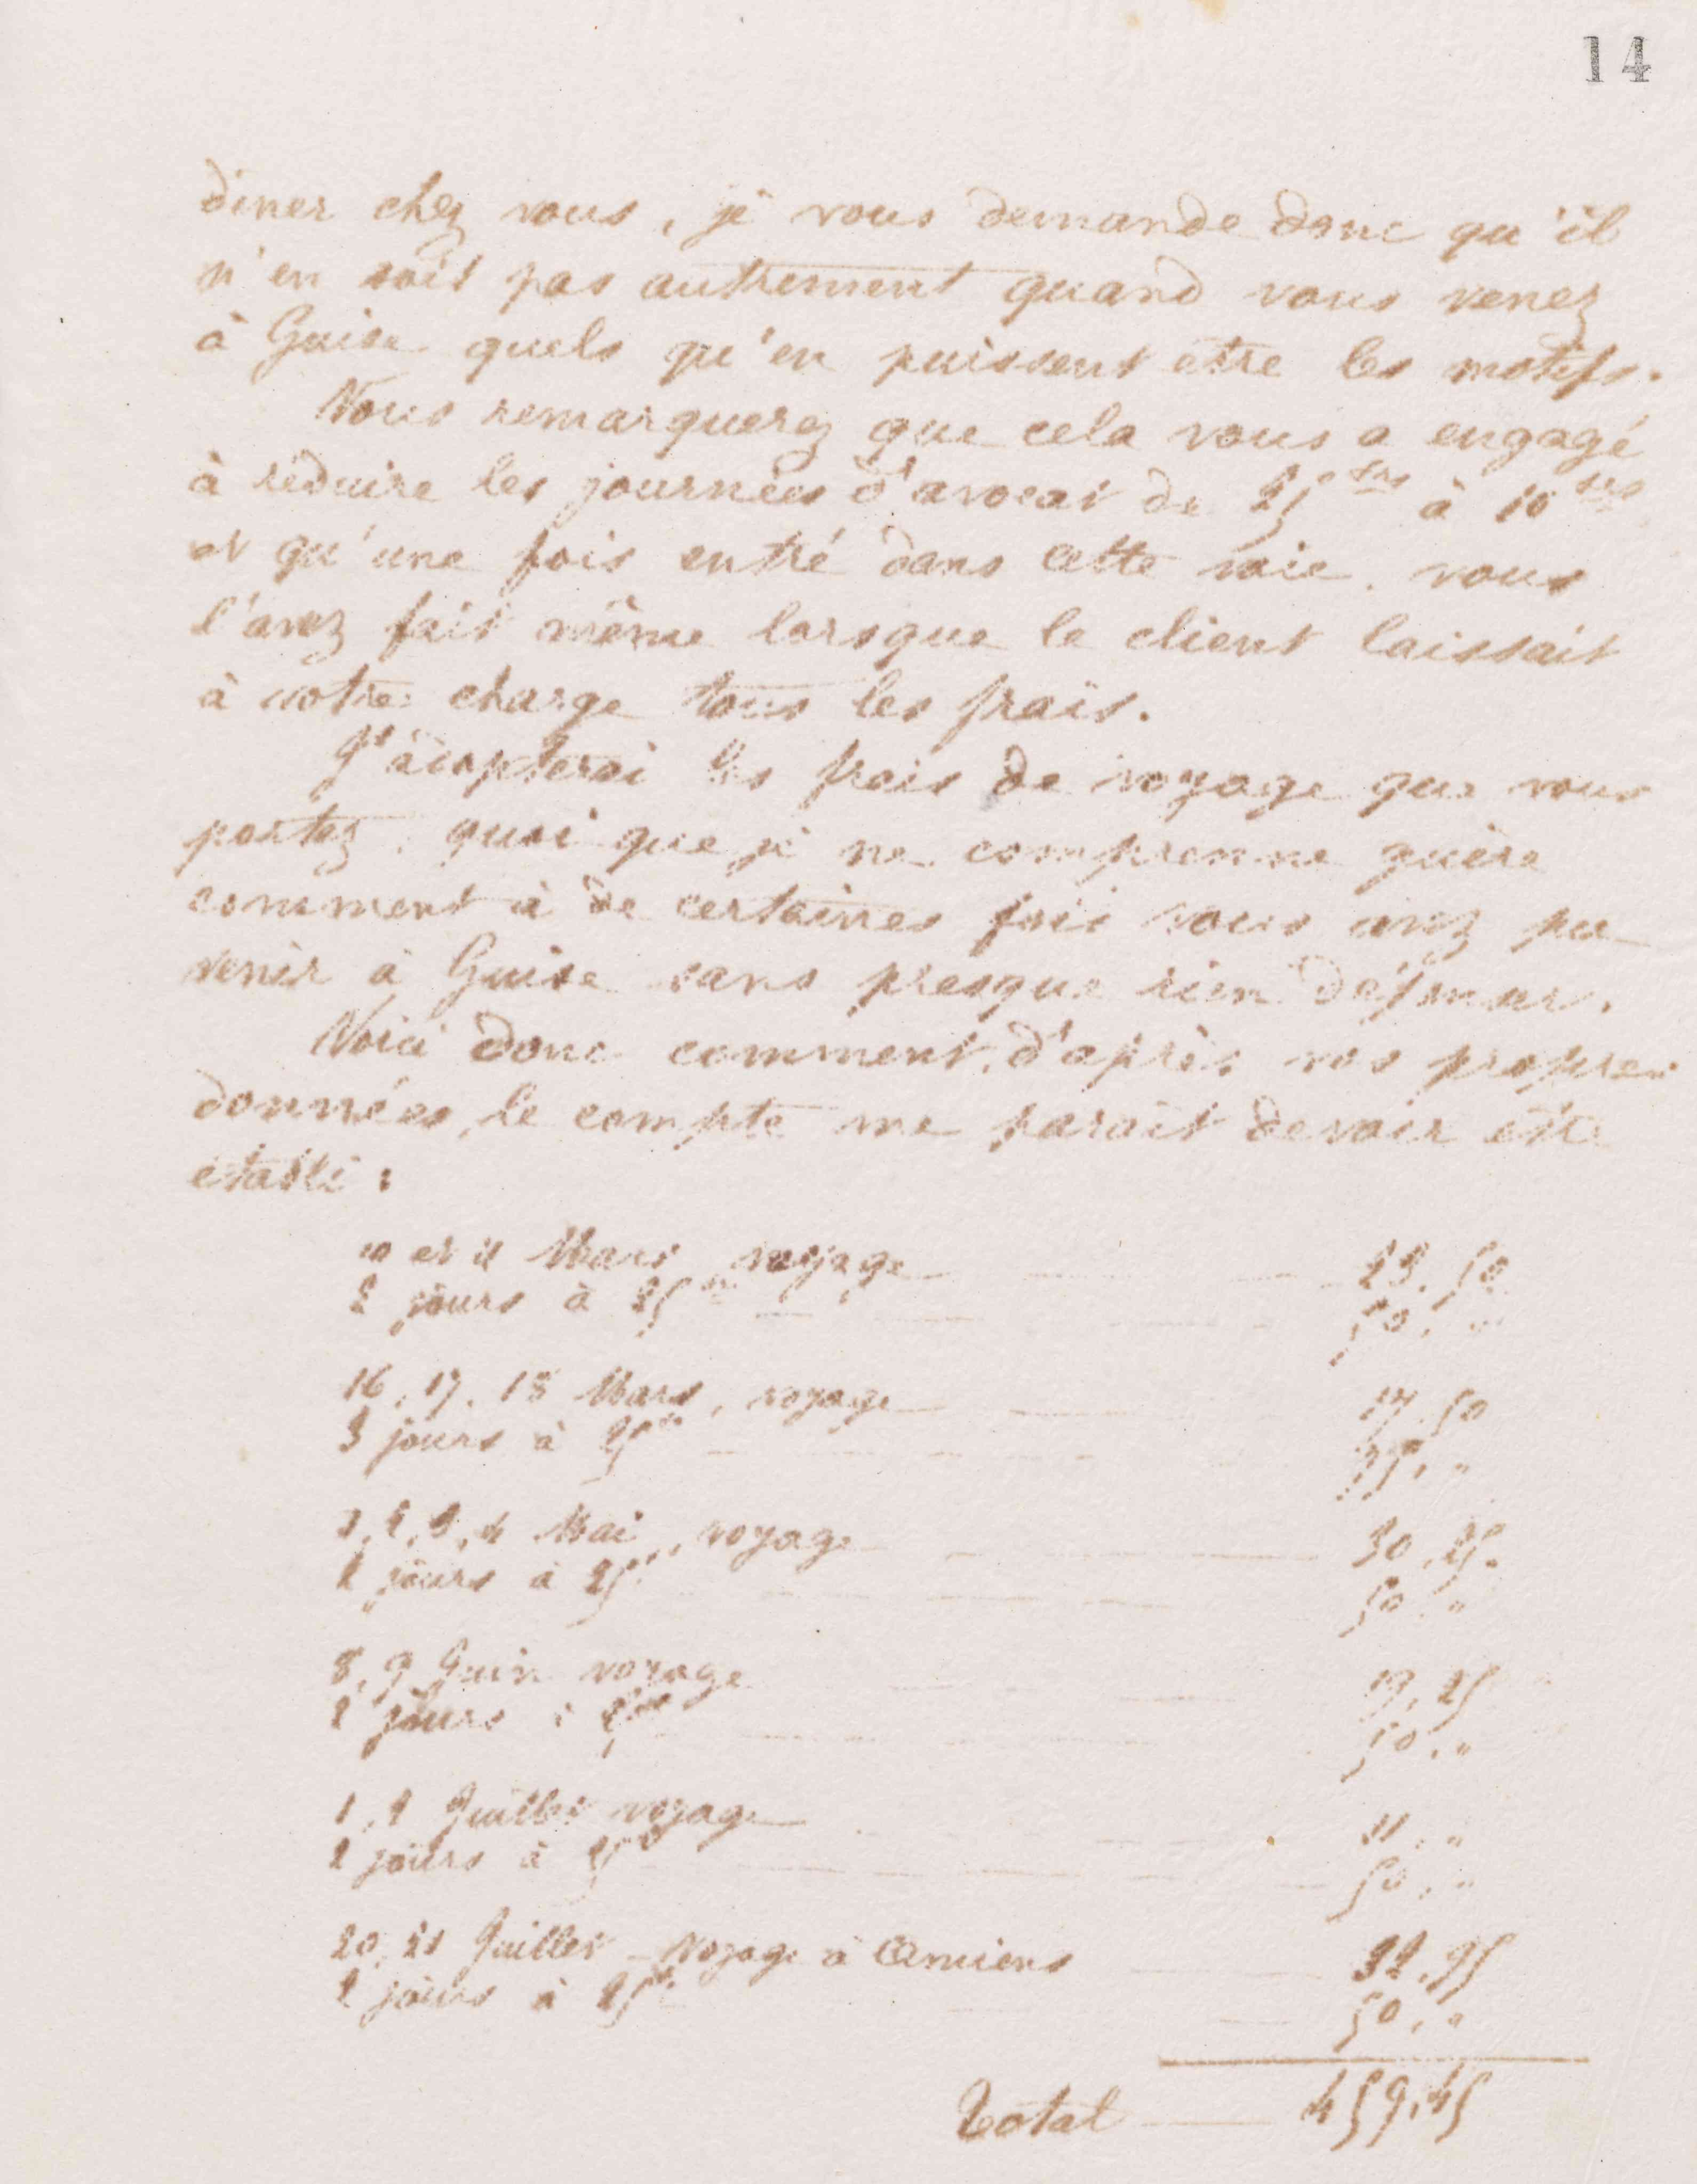 14
diner chez vous, je vous demande donc qu'il
n'en soit pas autrement quand vous venez
à Guise quels qu'en puissent être les motifs.
Vous remarquerez que cela vous a engagé
à réduire les journées d'avocat de 25 frs à 10 frs
et qu'une fois entré dans cette voie, vous
l'avez fait même lorsque le client laissait
à votre charge tous les frais.
J'accepterai les frais de voyage que vous
portez, quoi que je ne comprenne guère
comment à de certaines fois vous avez pu
venir à Guise sans presque rien dépenser.
Voici donc comment, d'après vos propres
données, le compte me parait devoir être
établi :
10 et 11 Mars voyage 23.50
2 jours à 25 frs 50. "
16, 17, 18 Mars, voyage 17.50
3 jours à 25 frs 75. "
1, 2, 3, 4 Mai, voyage 30.25
2 jours à 25 50. "
8, 9 Juin voyage 19,25
2 jours à 25 frs 50. "
1, 2 Juillet voyage 11. "
2 jours à 25 50. "
20, 21 Juillet voyage à Amiens 32.95
2 jours à 25 frs 50. "
Total 459,45